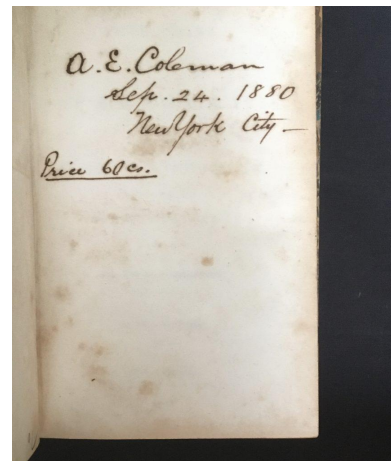 A. E. Coleman
Sep. 24. 1880
New York City –
Price 60 cs.